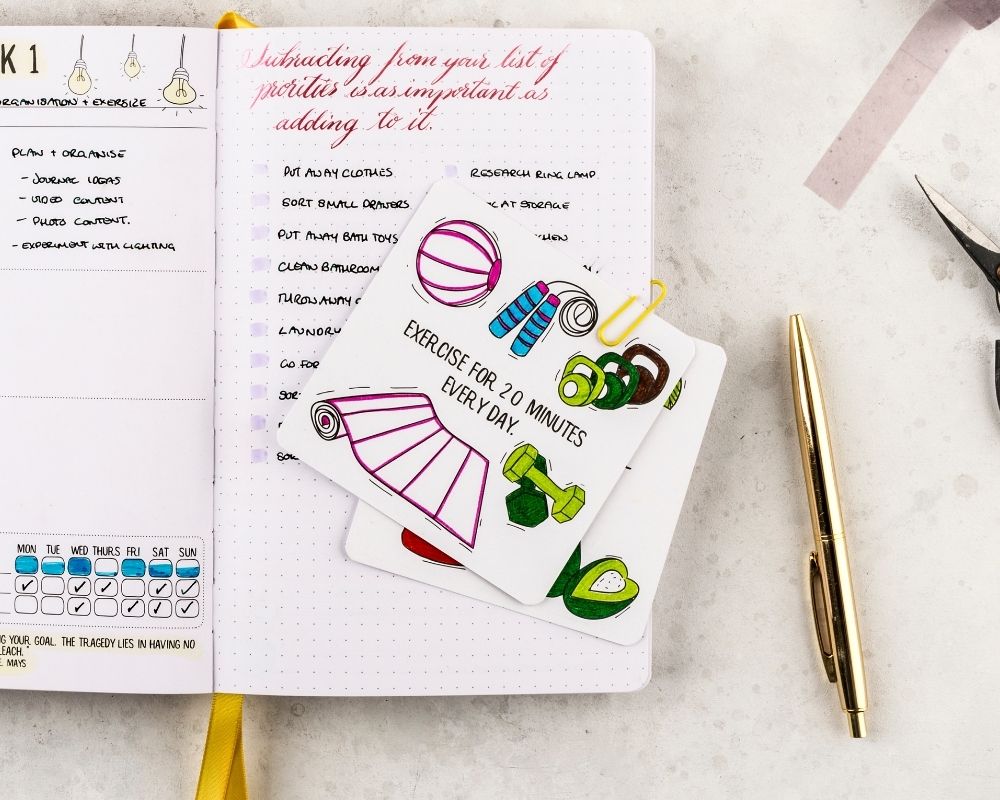 K 1
ORGANISATION + EXERSIZE
PLAN + ORGANISE
- JOURNAL IDEAS
- VIDEO CONTENT
- PHOTO CONTENT.
- EXPERIMENT WITH LIGHTING
MON TUE WED THURS FRI SAT SUN
G YOUR GOAL. THE TRAGEDY LIES IN HAVING NO
EACH."
E. MAYS
Subtracting from your list of
prorities is as important as
adding to it.
PUT AWAY CLOTHES
SORT SMALL DRAWERS
PUT AWAY BATH TOYS
CLEAN BATHROOM
THROW AWAY
LAUNDRY
GO FOR
RESEARCH RING LAMP
AT STORAGE
EXERCISE FOR 20 MINUTES
EVERY DAY.